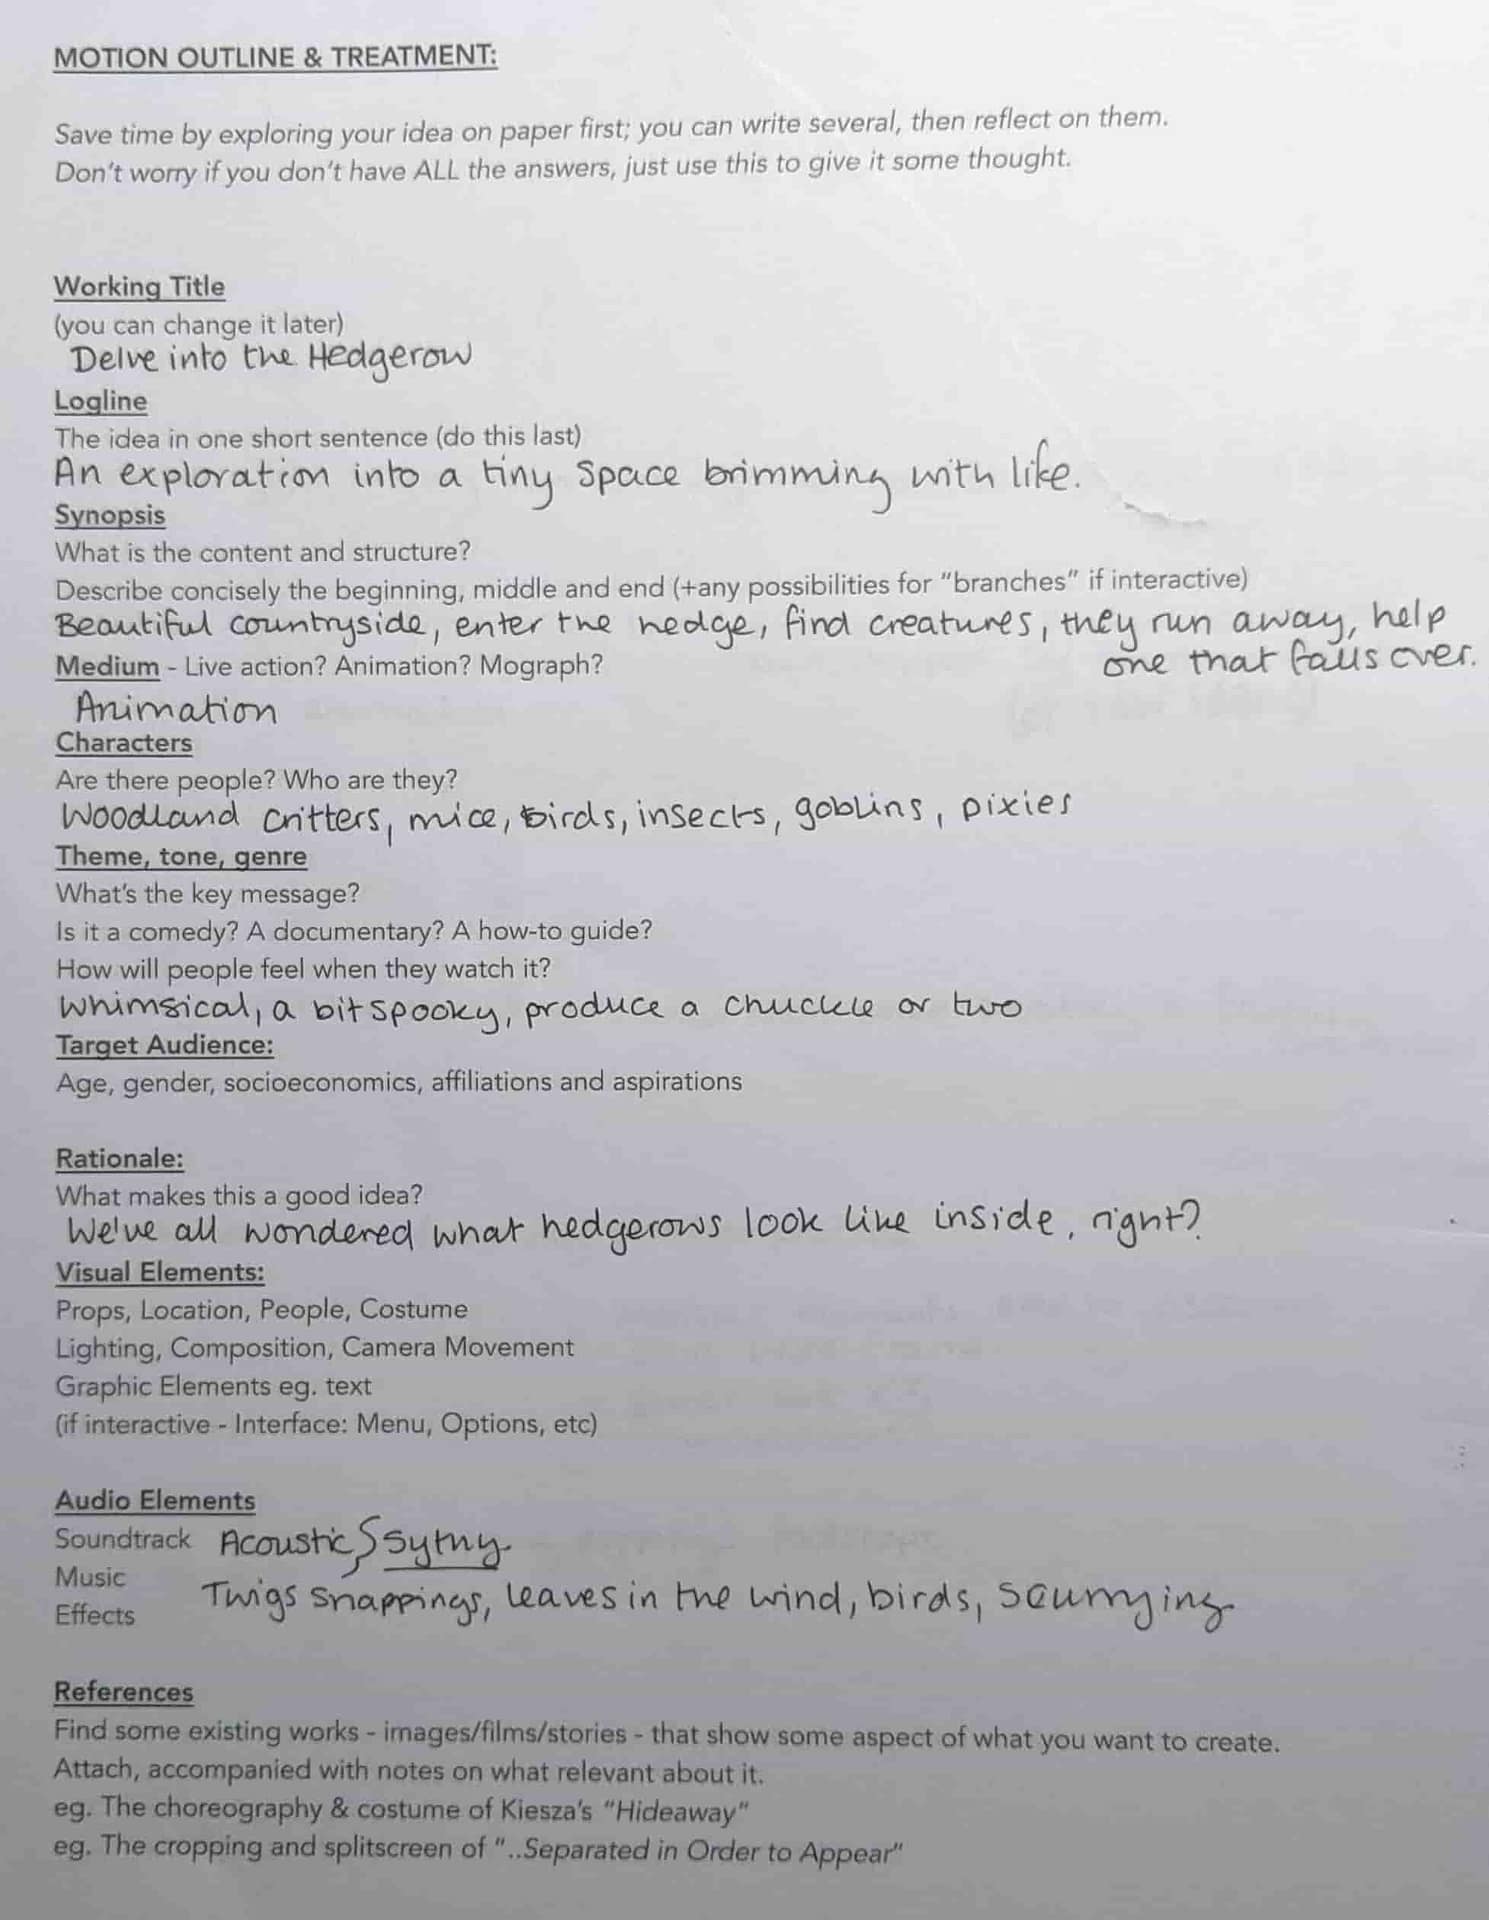 MOTION OUTLINE & TREATMENT:
Save time by exploring your idea on paper first; you can write several, then reflect on them.
Don't worry if you don't have ALL the answers, just use this to give it some thought.
Working Title
(you can change it later)
Delve into the Hedgerow
Logline
The idea in one short sentence (do this last)
An exploration into a tiny space brimming with like.
Synopsis
What is the content and structure?
Describe concisely the beginning, middle and end (+any possibilities for "branches" if interactive)
Beautiful countryside, enter the hedge, find creatures, they run away, help
one that falls over.
Medium - Live action? Animation? Mograph?
Animation
Characters
Are there people? Who are they?
Woodland critters, mice, birds, insects, goblins, pixies
Theme, tone, genre
What's the key message?
Is it a comedy? A documentary? A how-to guide?
How will people feel when they watch it?
Whimsical, a bit spooky, produce a chuckle or two
Target Audience:
Age, gender, socioeconomics, affiliations and aspirations
Rationale:
What makes this a good idea?
We've all wondered what hedgerows look like inside, right?
Visual Elements:
Props, Location, People, Costume
Lighting, Composition, Camera Movement
Graphic Elements eg. text
(if interactive - Interface: Menu, Options, etc)
Audio Elements
Soundtrack Acoustic, sythy
Music
Twigs snappings, leaves in the wind, birds, scurrying
Effects
References
Find some existing works - images/films/stories - that show some aspect of what you want to create.
Attach, accompanied with notes on what relevant about it.
eg. The choreography & costume of Kiesza's "Hideaway"
eg. The cropping and splitscreen of "..Separated in Order to Appear"